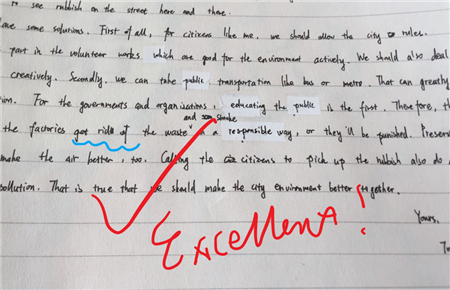 to see rubbish on the street here and there.
ave some solutions. First of all, for citizens like me, we should allow the city rules.
part in the volunteer works which are good for the environment actively. We should also deal
creatively. Secondly, we can take public transportation like bus or metro. That can greatly
tion. For the governments and organizations, educating the public is the first. Therefore, th
and smoke
the factories get rid of the waste in a responsible way, or they'll be punished. Preserv
make the air better, too. Calling the citizens to pick up the rubbish also do
pollution. That is true that we should make the city environment better together.
Yours,
Excellent!